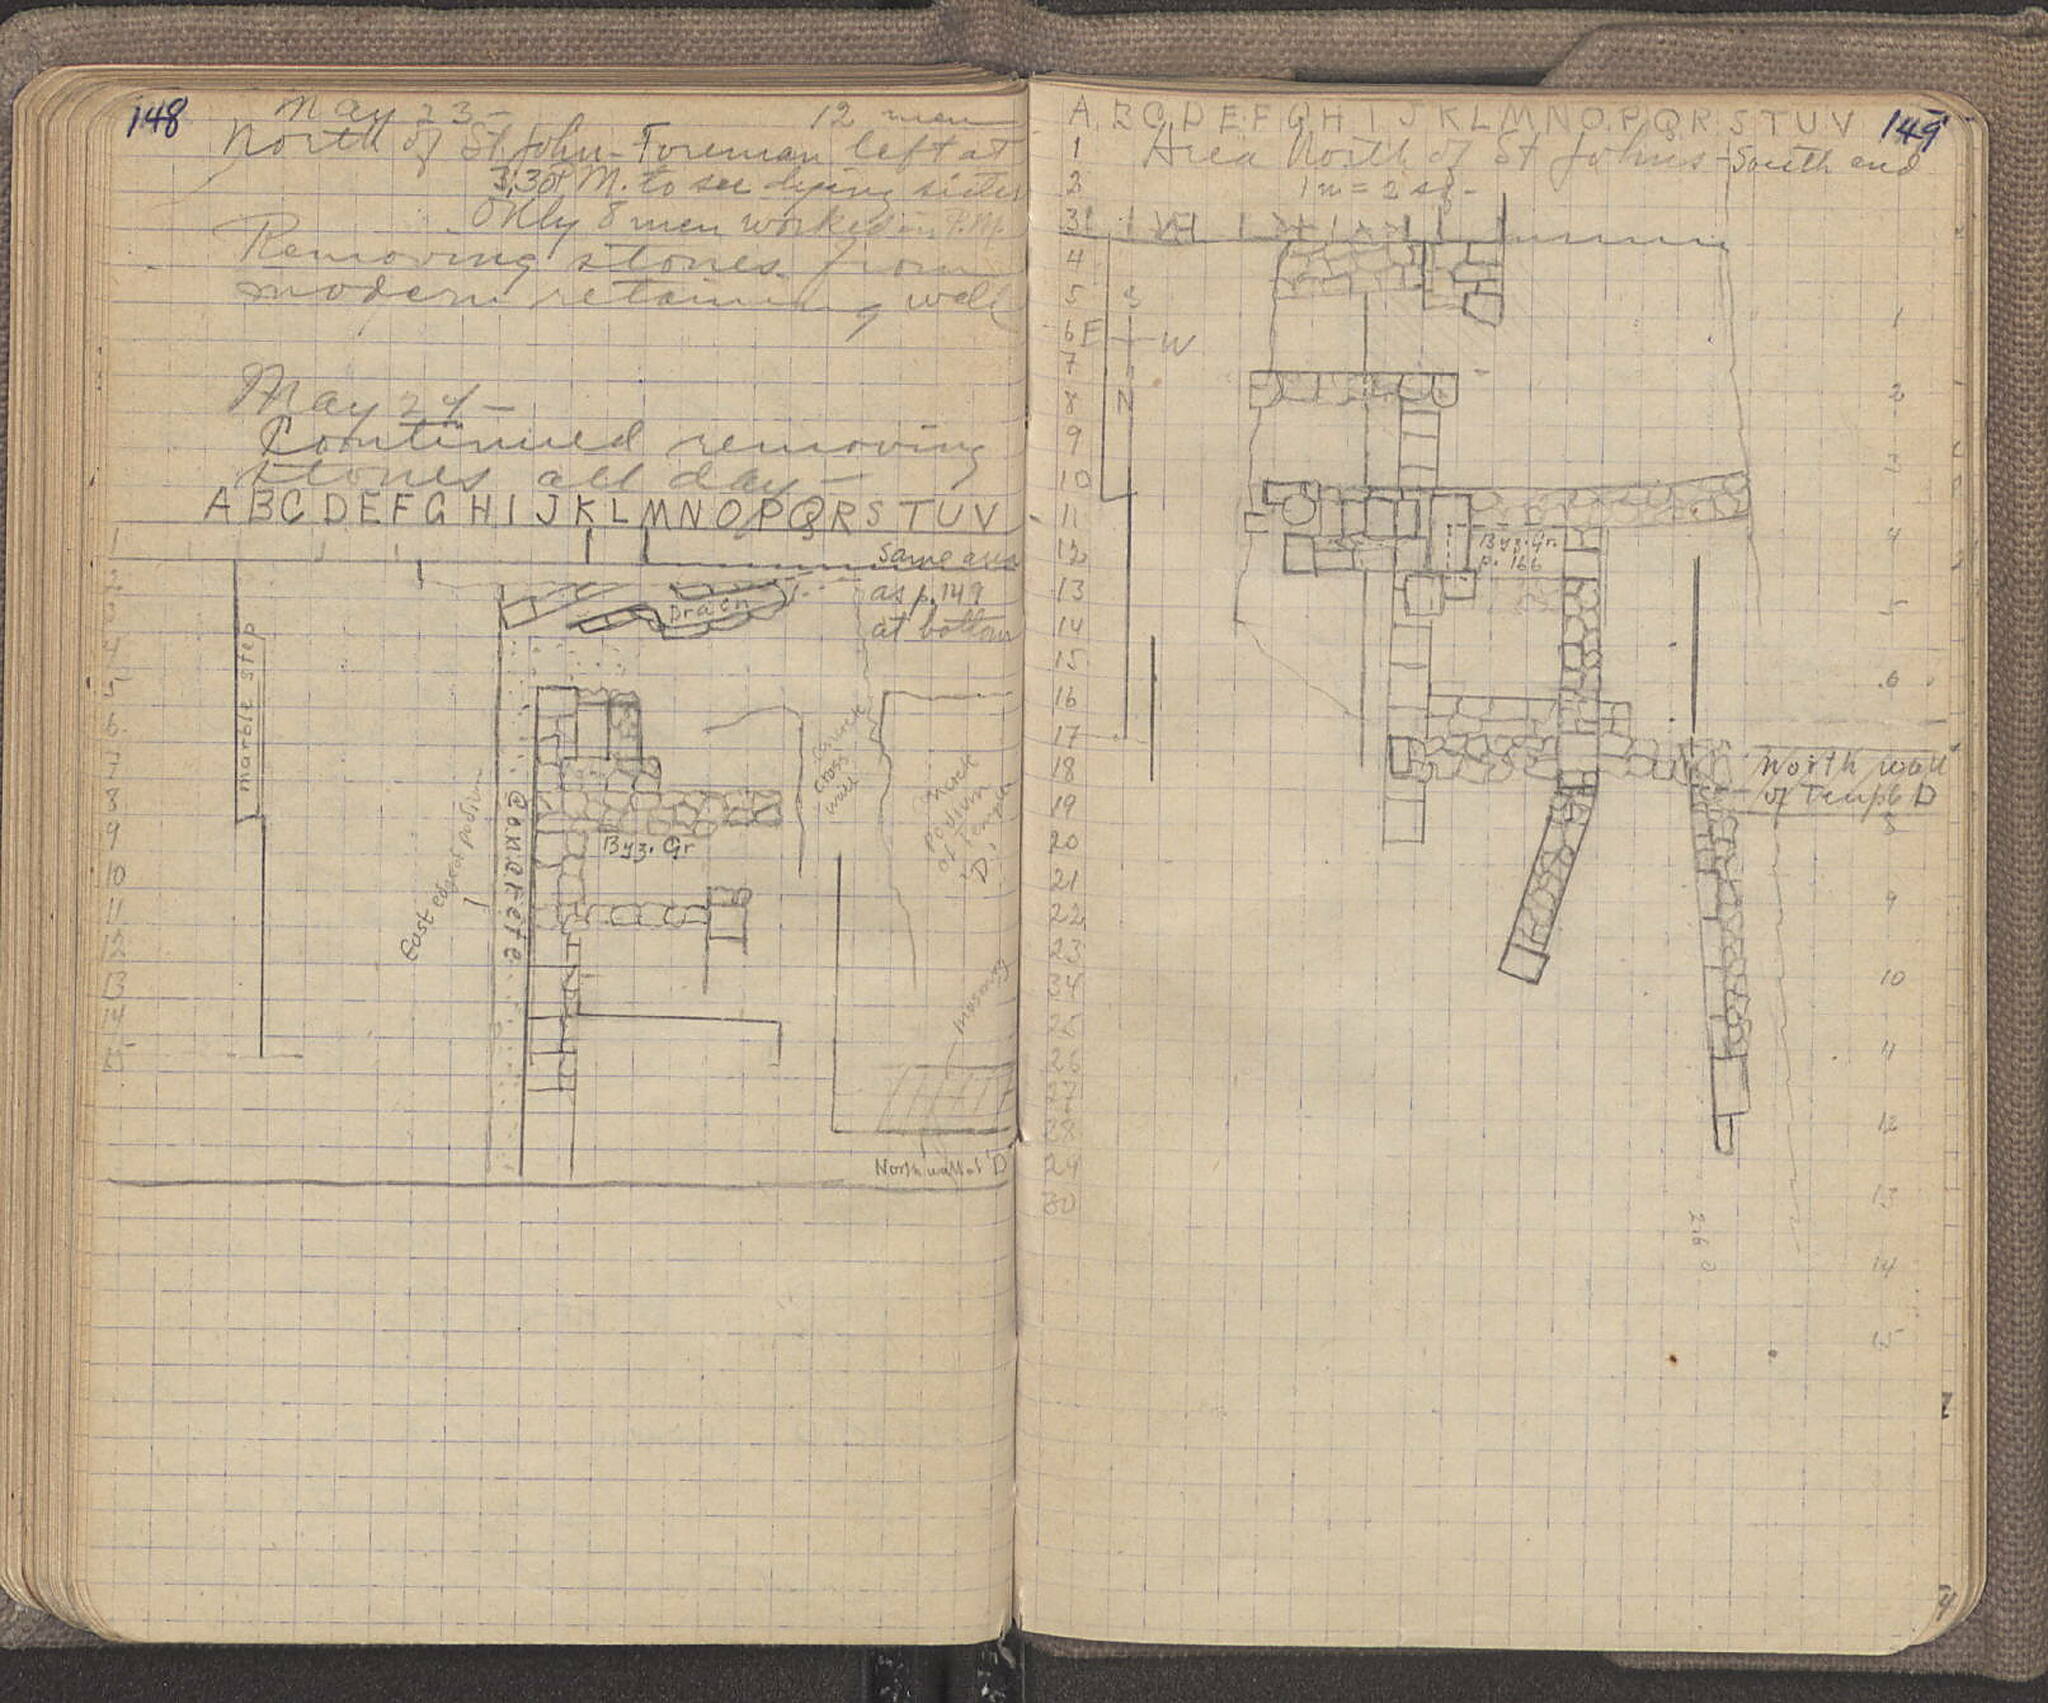 148
May 23 - 12 men
North of St John - Foreman left at
3,30 P.M. to see dying sister
Only 8 men worked in P.M.
Removing stones from
modern retaining wall
May 24 -
Continued removing
stones all day -
A B C D E F G H I J K L M N O P Q R S T U V
1
2
3
4
5
6
7
8
9
10
11
12
13
14
15
same area
as p. 149
at bottom
Drain
marble step
East edge of podium
Concrete
Byz. Gr
church
cross
wall
North
podium
of Temple
D
masonry
North wall of D
149
A B C D E F G H I J K L M N O P Q R S T U V
Area North of St Johns - South end
1 m = 2 sq -
1
2
3
4
5
6
7
8
9
10
11
12
13
14
15
16
17
18
19
20
21
22
23
34
25
26
27
28
29
30
S
E W
N
Byz. Gr.
p. 166
North wall
of Temple D
1
2
3
4
5
6
8
9
10
11
12
13
14
15